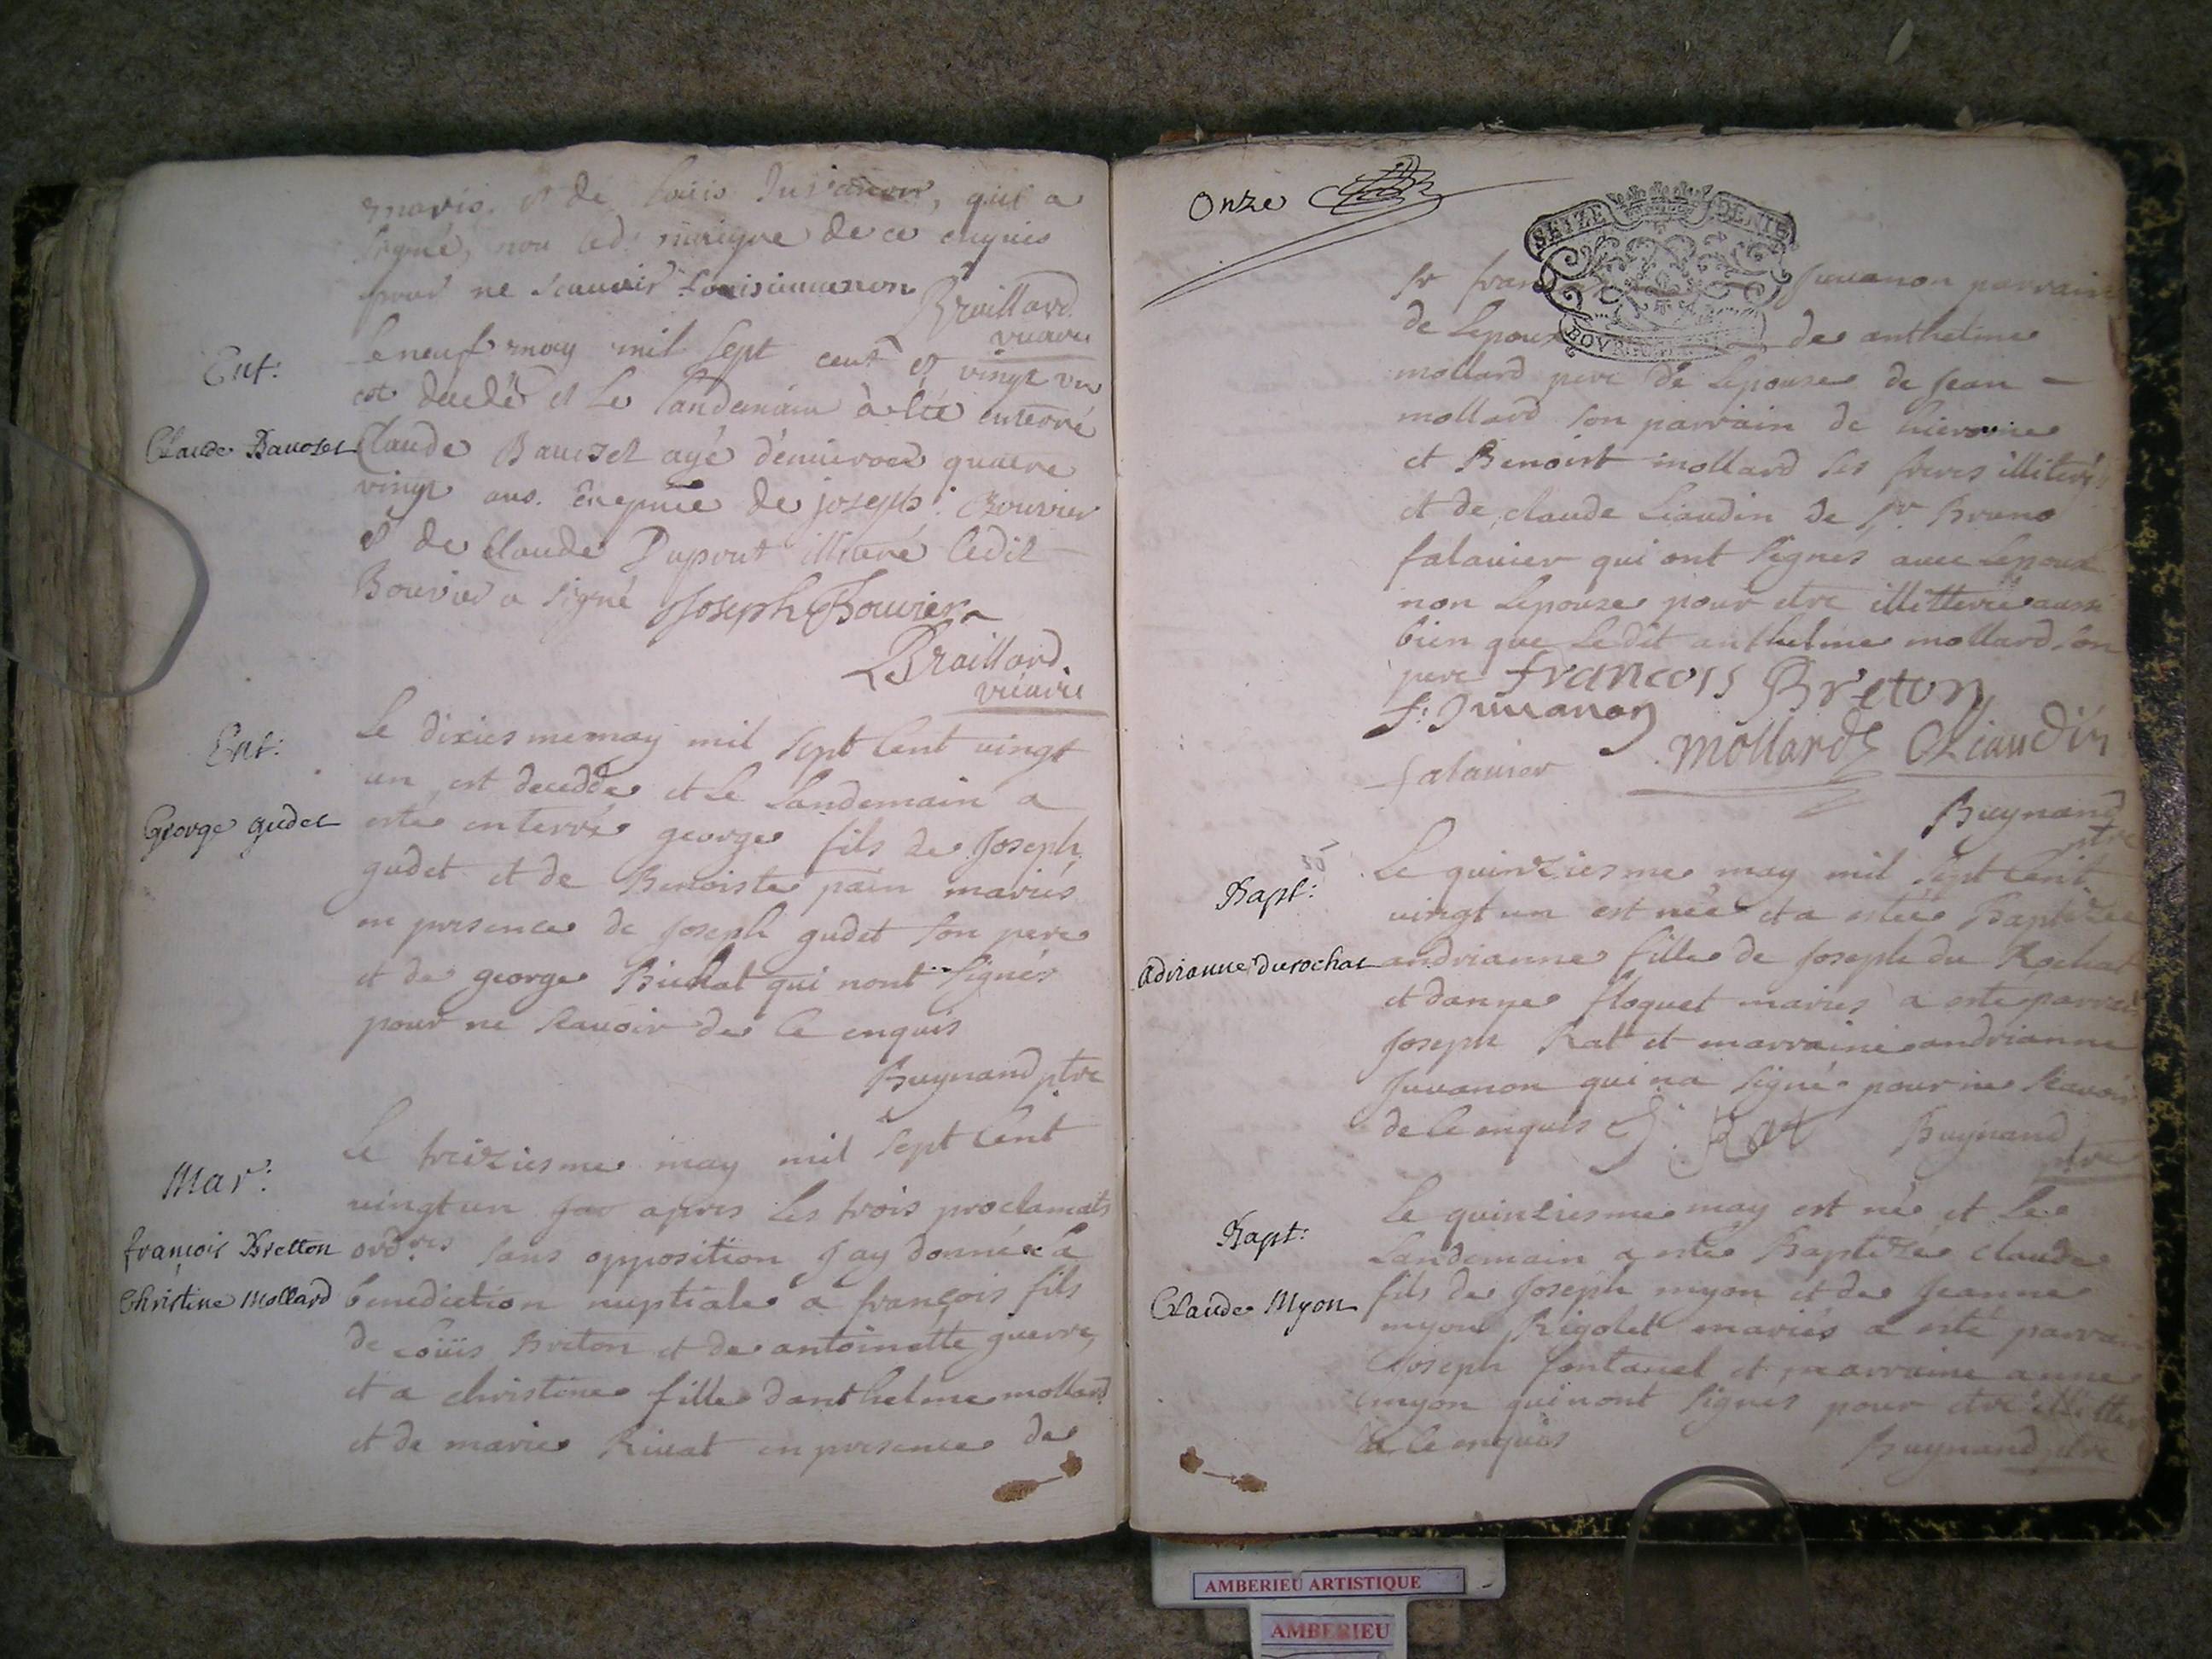 maries. et de Louis Juvanon, qui a
signé, non led. marique de ce enquis
pour ne scauoir Louis iuuanon
Braillard
vicaire
Ent:
Claude Bauozet
Le neuf may mil sept cent et vingt un
est decedé et Le Landemain à été enterré
Claude Bauozet agé d'enuiron quatre
vingt ans. En pnce de joseph Bouvier
et de Claude Duprat illiteré ledit
Bouvier a signé Joseph Bouvier
Braillard.
vicaire
Ent:
George gudet
Le dixiesme may mil sept Cent vingt
un est decedde et Le Landemain a
esté enterré george fils de Joseph
gudet et de Benoiste pain mariés
en presence de Joseph gudet son pere
et de george Bichat qui nont signés
pour ne scauoir de ce enquis
Buynand ptre
Mar:
françois Bretton
Christine Mollard
Le treiziesme may mil sept Cent
vingt un apres Les trois proclamats
ordres sans opposition Jay donné La
benediction nuptiale a françois fils
de Loüis Breton et de antoinette guerre,
et a christine fille danthelme mollard
et de marie Riuat en presence de
Onze
SEIZE DENIE
BOVR
sr fran Juuanon parrain
de Lepoux de anthelme
mollard pere de Lepouse de Jean
mollard son parrain de hierome
et Benoist mollard ses freres illiterés
et de claude Liaudin de sr Bruno
falauier qui ont signes auec Lepoux
non Lepouse pour etre illitteree aussi
bien que Ledit anthelme mollard son
pere françois Breton
f: Juuanon
mollard CLiaudin
falauier
Buynand
ptre
Bapt:
adrianne durochat
Le quinziesme may mil sept Cent
vingt un est née et a estée Baptizée
andrianne fille de Joseph du Rochat
et danne floquet mariés a esté parrain
Joseph Rat et marraine andrianne
Juuanon qui na signé pour ne scauoir
de ce enquis J. Rat Buynand
ptre
Bapt:
Claude Myon
Le quinziesme may est né et Le
Landemain a esté Baptizé claude
fils de Joseph myon et de Jeanne
myon Rigolet mariés a esté parrain
Joseph fontanel et marraine anne
myon qui nont signes pour etre illitte
de ce enquis
Buynand ptre
AMBERIEU ARTISTIQUE
AMBERIEU